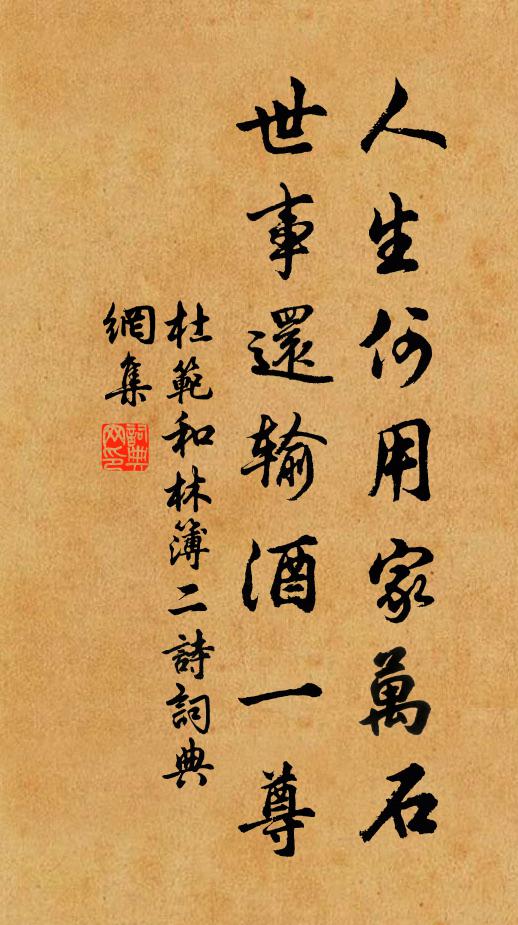 人生何用家萬石
世事還输酒一尊
杜範和林簿二詩詞典
網集
詞典
网印